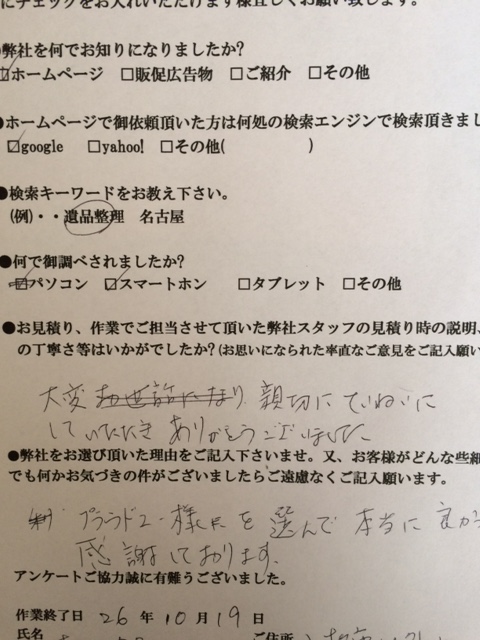 にチェックをお入れいただけます様宜しくお願い致します。
●弊社を何でお知りになりましたか?
☑ホームページ □販促広告物 □ご紹介 □その他
●ホームページで御依頼頂いた方は何処の検索エンジンで検索頂きまし
☑google □yahoo! □その他( )
●検索キーワードをお教え下さい。
(例)・・遺品整理 名古屋
●何で御調べされましたか?
☑パソコン ☑スマートホン □タブレット □その他
●お見積り、作業でご担当させて頂いた弊社スタッフの見積り時の説明、
の丁寧さ等はいかがでしたか?(お思いになられた率直なご意見をご記入願い
大変お世話になり 親切にていねいに
していただき ありがとうございました
●弊社をお選び頂いた理由をご記入下さいませ。又、お客様がどんな些細
でも何かお気づきの件がございましたらご遠慮なくご記入願います。
様 を選んで本当に良か
感謝しております。
アンケートご協力誠に有難うございました。
作業終了日 26 年 10 月 19 日
氏名 ご住所